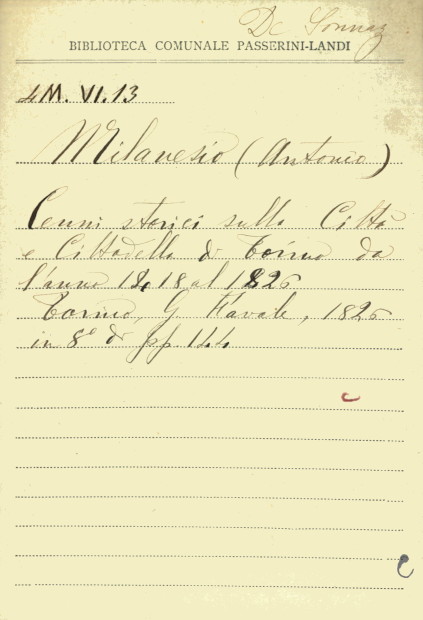 De Sonnaz
BIBLIOTECA COMUNALE PASSERINI-LANDI
4M. VI. 13
Milanesio (Antonio)
Cenni storici sulla Città
e Cittadella di Torino da
l'anno 1418 al 1826
Torino, G. Favale, 1826
in 8º di pp 144
c
c